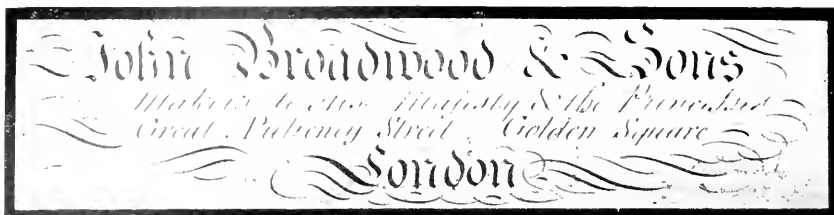 John Broadwood & Sons
Makers to His Majesty & the Princesses
Great Pulteney Street Golden Square
London